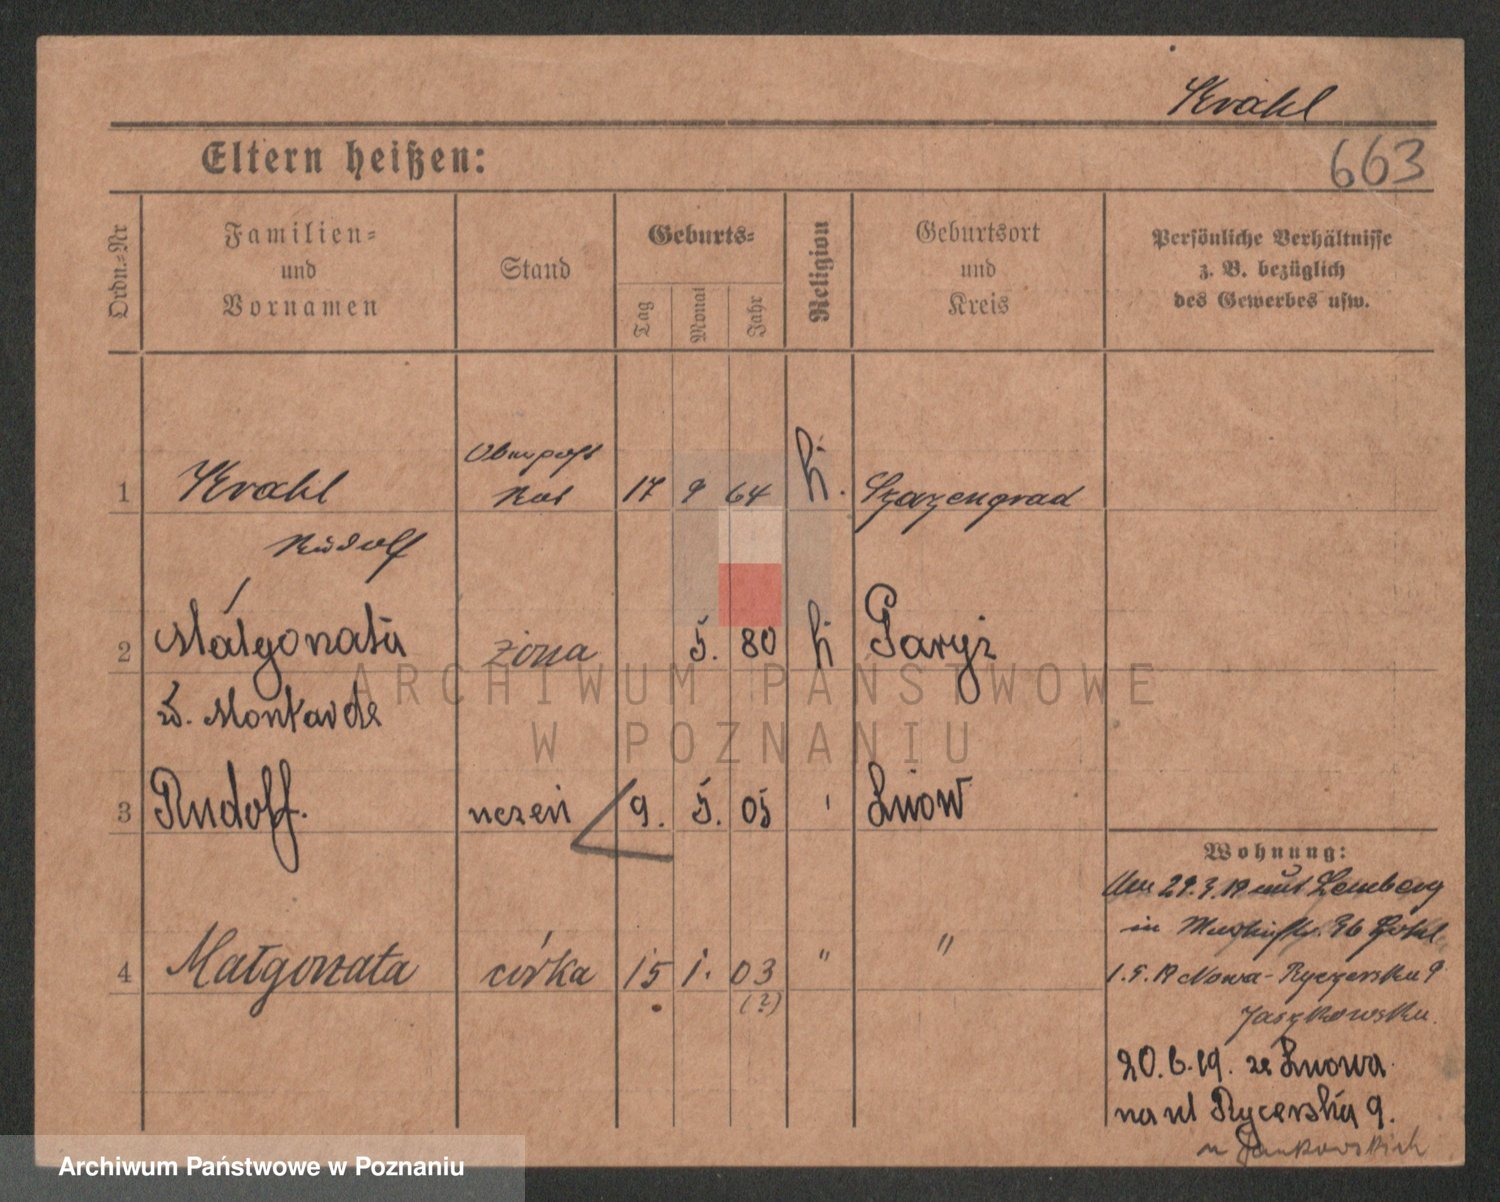 Krahl
663
Eltern heißen:
Ordn.-Nr
Familien-
und
Vornamen
Stand
Geburts-
Tag
Monat
Jahr
Religion
Geburtsort
und
Kreis
Persönliche Verhältnisse
z. B. bezüglich
des Gewerbes usw.
1 Krahl Oberpost Rat 17 9 64 Szazengrad
Rudolf
2 Małgorzata żona 5. 80 Paryż
z d. Montarde
3 Rudolf. uczeń 9. 5. 05 Lwow
4 Małgorzata córka 15 1. 03 " "
(?)
Wohnung:
Am 29.3.19 aus Lemberg
in
1.5.19 Nowa-Rycerska 9
Jaszkowska.
20.6.19. ze Lwowa
na ul Rycerską 9.
u Jankowskich
ARCHIWUM PAŃSTWOWE
W POZNANIU
Archiwum Państwowe w Poznaniu